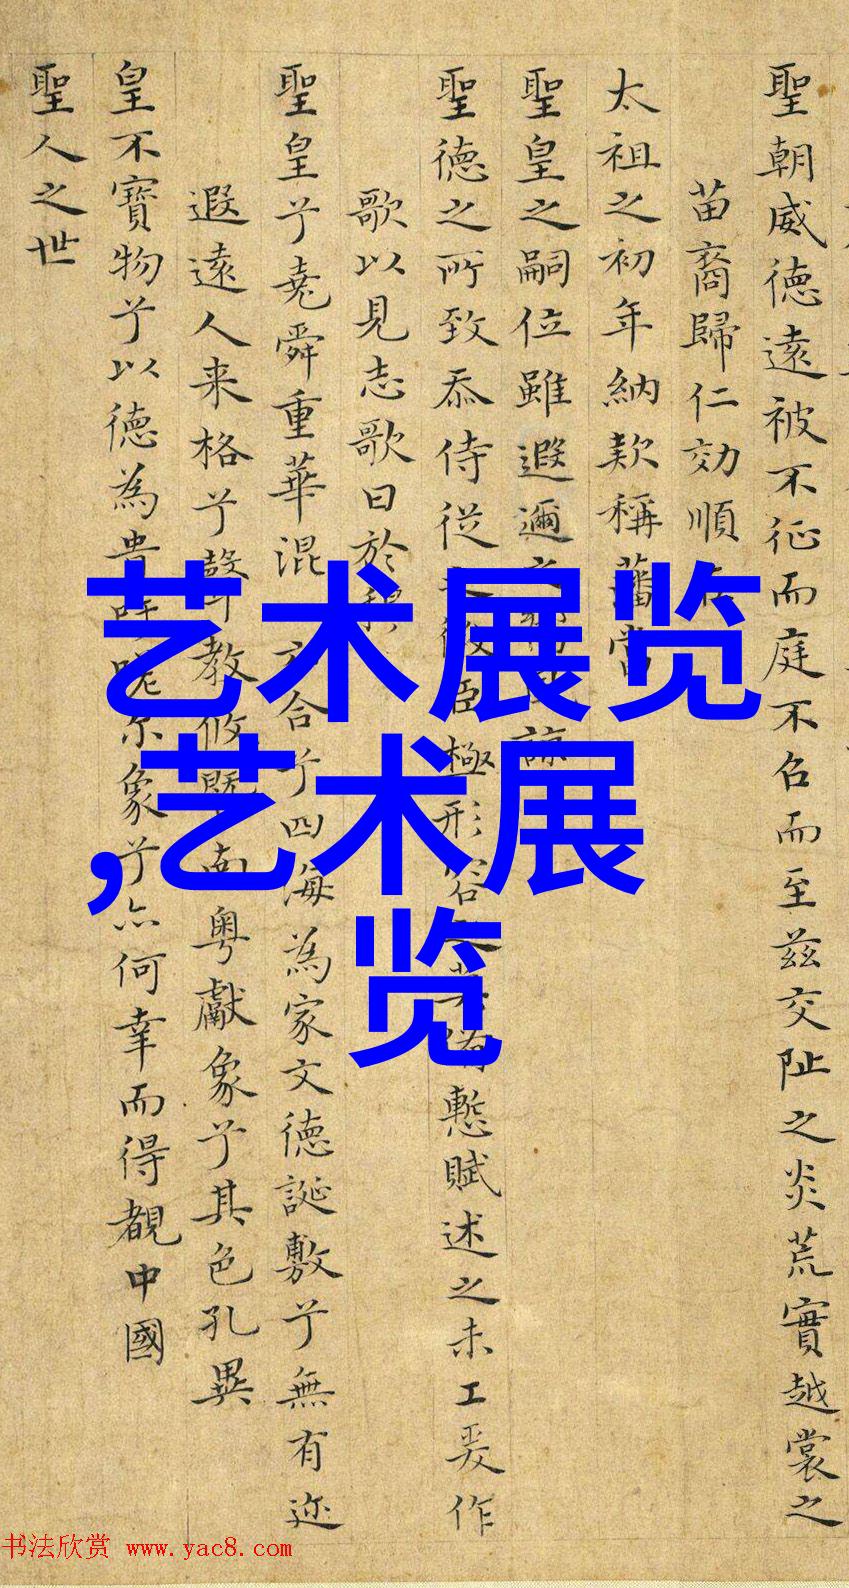 聖朝威德遠被不征而庭不召而至茲交阯之炎荒實越裳之
苗裔歸仁効順在
太祖之初年納款稱藩當
聖皇之嗣位雖遐邇之
聖德之所致忝侍從之微臣極形容備慙賦述之未工爰作
歌以見志歌曰於穆
聖皇兮堯舜重華混六合兮四海為家文德誕敷兮無有迩
遐遠人来格兮聲教攸暨南粤獻象兮其色孔異
皇不寶物兮以德為貴吁嗟尓象兮亦何幸而得覩中國
聖人之世
艺术展览
,艺术展
览
书法欣赏 www.yac8.com